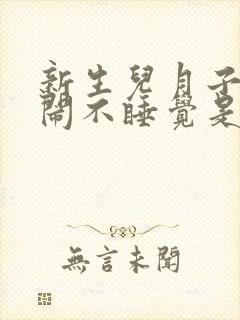 新生兒月子
鬧不睡覺是
無言未聞